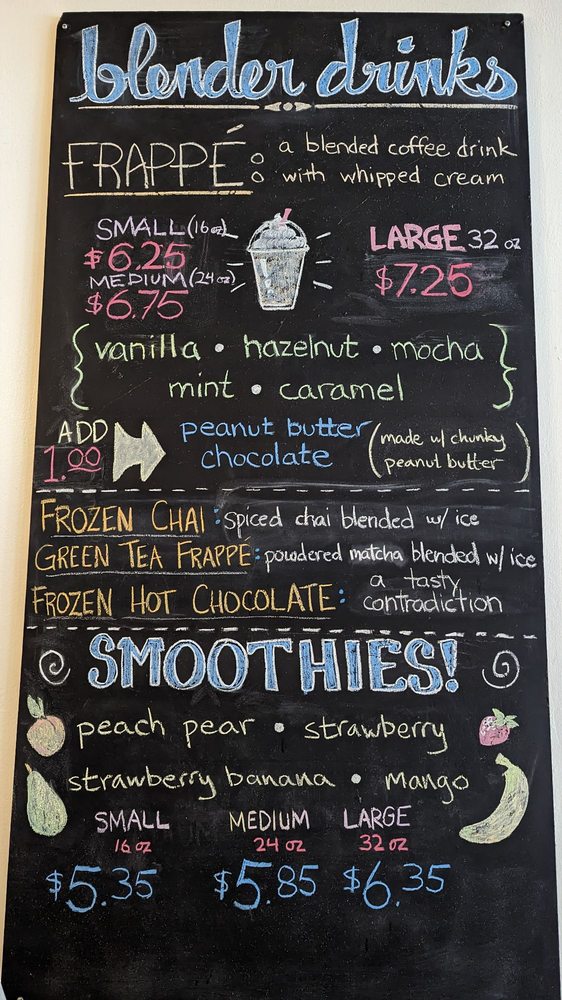 blender drinks
FRAPPÉ: a blended coffee drink
with whipped cream
SMALL (16 oz)
$6.25
MEDIUM (24 oz)
$6.75
LARGE 32 oz
$7.25
{vanilla • hazelnut • mocha
mint • caramel}
ADD
1.00
peanut butter
chocolate
(made w/ chunky
peanut butter)
FROZEN CHAI: spiced chai blended w/ ice
GREEN TEA FRAPPÉ: powdered matcha blended w/ ice
FROZEN HOT CHOCOLATE: a tasty
contradiction
SMOOTHIES!
peach pear • strawberry
strawberry banana • mango
SMALL MEDIUM LARGE
16 oz 24 oz 32 oz
$5.35 $5.85 $6.35